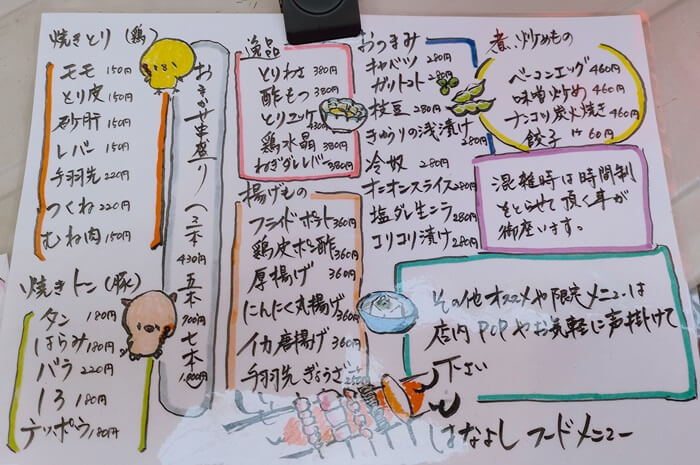 焼きとり(鶏)
モモ 150円
とり皮 150円
砂肝 150円
レバー 150円
手羽先 220円
つくね 220円
むね肉 150円
焼きトン(豚)
タン 180円
はらみ 180円
バラ 220円
しろ 180円
テッポウ 180円
おまかせ串盛り
三本 430円
五本 700円
七本 1,000円
逸品
とりわさ 380円
酢もつ 380円
とりユッケ 430円
鶏水晶 380円
ねぎダレレバー 380円
揚げもの
フライドポテト 360円
鶏皮ポン酢 360円
厚揚げ 360円
にんにく丸揚げ 360円
イカ唐揚げ 360円
手羽先ぎょうざ
おつまみ
キャベツ 280円
ガリトマト 280円
枝豆 280円
きゅうりの浅漬け 280円
冷奴 280円
オニオンスライス 280円
塩ダレ生ニラ 280円
コリコリ漬け 280円
煮・炒めもの
ベーコンエッグ 460円
味噌炒め 460円
ナンコツ炭火焼き 460円
餃子 1ケ 60円
混雑時は時間制
をとらせて頂く事が
御座います。
その他オススメや限定メニューは
店内POPやお気軽に声掛けて
下さい
はなよし フードメニュー